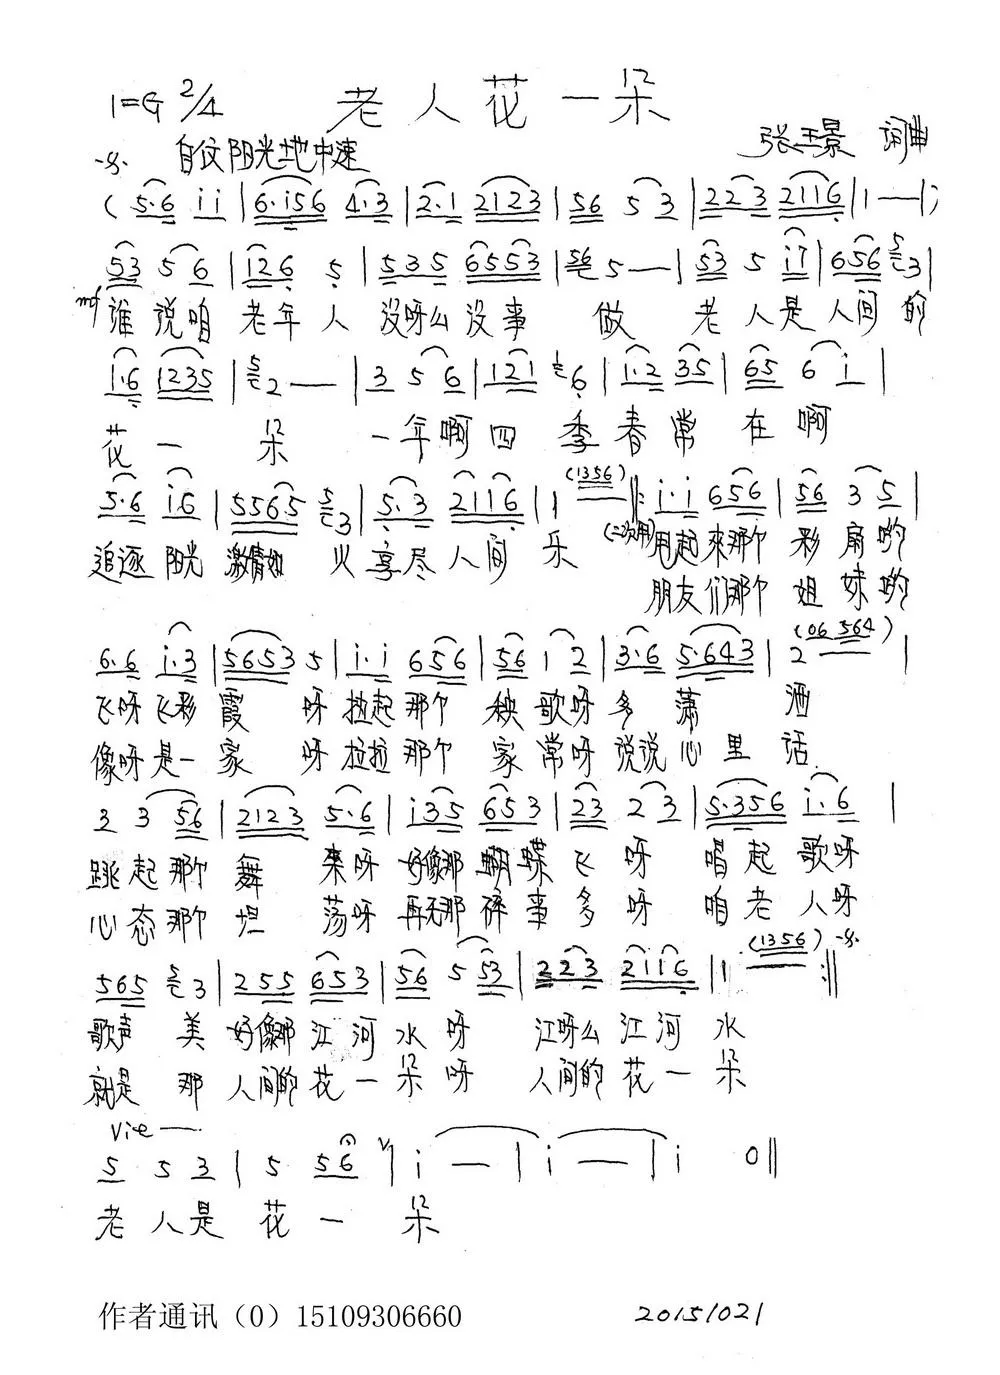 1=G 2/4 老人花一朵
自伩阳光地中速 张玉景 词曲
(5·6 i i | 6·i56 4·3 | 2·1 2123 | 56 5 3 | 223 2116 | 1 — — |)
53 5 6 | 126 5 | 535 6553 | 56 5 — — | 53 5 i7 | 656 5 3 |
mf 谁说咱 老年人 没呀么没事 做 老人是人间的
1·6 1235 | 5 2 — | 3 5 6 | 121 1 6 | 1·2 35 | 65 6 i |
花一 朵 一年啊四 季春常 在啊
(1356)
5·6 i6 | 5565 5 3 | 5·3 2116 | 1 ‖: i·i 656 | 56 3 5 |
追逐阳光 激情如 火享尽人间 乐 (二次用) 甩起来那个 彩扇哟
朋友们那个 姐妹哟
(06 564)
6·6 i·3 | 5653 5 | i·i 656 | 56 1 2 | 3·6 5·643 | 2 |
飞呀飞彩 霞 呀拉起那个 秧歌呀多 萧 洒
像呀是一 家 呀拉拉那个 家常呀说说心里 话
3 3 56 | 2123 5·6 | i35 653 | 23 2 3 | 5·356 i·6 |
跳起那个 舞 来呀 好像那蝴蝶飞 呀 唱起歌呀
心态那个 坦 荡呀 再无那碎事多 呀 咱老人呀
(1356)
565 5 3 | 255 653 | 56 5 53 | 223 2116 | 1 :‖
歌声 美 好像那江河水呀 江呀么江河水
就是 那 人间的花一朵呀 人间的花一朵
Vie —
5 5 3 | 5 56 | i — | i — | i 0 ‖
老人是 花一 朵
作者通讯（0）15109306660 20151021